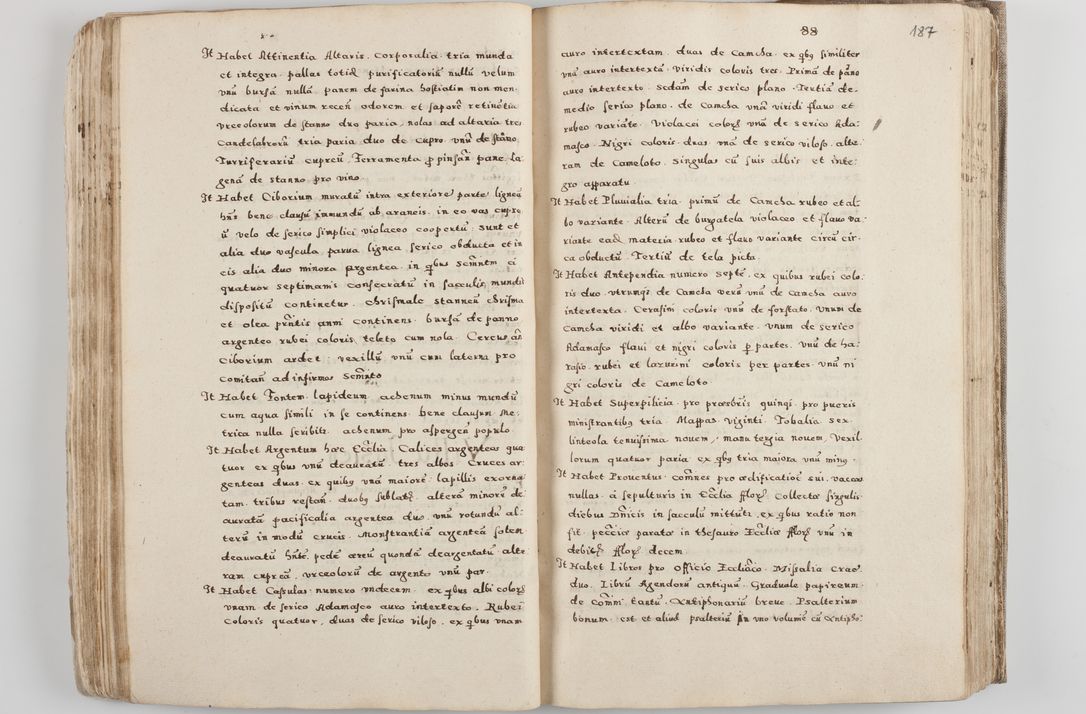 It Habet Attinentia Altaris. corporalia tria munda
et integra. pallas totiđ purificatoriũ nullũ velum
vnũ bursã nullã. panem de farina hostiatim non men-
dicata et vinum recen̄ odorem et saporẽ retinẽtia
vrceolorum de stanno duo paria, nolas ad altaria tres
Candelabrorũ tria paria. duo de cupro. vnũ de stãno.
Turriferariũ cupreũ. Ferramenta p̱ pinsan̄ pane. La-
genã de stanno pro vino.
It Habet Ciborium muratũ intra exteriore parte ligneũ
hñs bene clausũ inmundũ ab araneis. in eo vas cupre
ũ velo de serico simplici violaceo coopertũ. sunt et
alia duo vascula, parua lignea serico obducta et in
eis alia duo minora argentea. in q̱bus scm̃ntem ẽ
quatuor septimanis consecratũ in sacculis mundis
dispositũ continetur. chrismale stanneũ chrisma
et olea pr̃ntis anni continens. bursã de panno
argenteo rubei coloris teleto cum nola. Cereus añ
Ciborium ardet. vexillũ vnũ cum laterna pro
Comitan̄ ad infirmos Scm̃nto
It Habet Fontem lapideum achenum minus mundũ
cum aqua simili in se continens. bene clausum Me-
trica nulla scribitᵣ. achenum pro aspergen̄ populo.
It Habet Argentum hæc Ecc̃lia. Calices argenteos qua
tuor ex q̱bus vnũ deauratũ. tres albos. Cruces ar-
genteas duas. ex quibꝫ vnã maiorẽ lapillis exorna
tam. tribus restan̄. duobꝫ sublatis. alterã minorẽ de
auratã. pacificalia argentea duo, vnũ rotundũ al-
terũ in modũ crucis. Monstrantiã argenteã solem
deauratũ hñtẽ. pedẽ æreũ quondã deargentatũ alte
ram cupreã, vrceolorũ de argento vnũ par.
It Habet Casulas numero vndecem. ex q̱bus albi colorꝫ
vnam de serico Adamasco auro intertexto. Rubei
Coloris quatuor, duas de serico viloso, ex q̱bus vnam
88 187
auro intertextam. duas de Camcha. ex q̱bꝫ similiter
vnã auro intertextã. viridis coloris tres. Primã de pãno
auro intertexto. Scdam de serico plano. Tertiã de-
medio serico plano. de Camcha vnã viridi flauo et
rubeo variãte. Violacei colorꝫ vnã de serico Ada-
masco. Nigri coloris duas vnã de serico viloso. alte-
ram de Cameloto. singulas cũ suis albis et inte-
gro apparatu
It Habet Pluuialia tria. primũ de Camcha rubeo et al-
bo variante. Alterũ de burgatela violaceo et flauo va-
riante eađ materia rubeo et flauo variante circũ cir-
ca obductũ. Tertiũ de tela picta.
It Habet Antependia numero septẽ. ex quibus rubei colo-
ris duo. vtrumqꝫ de Camcha verũ vnũ de Camcha auro
intertexta. Cerasini coloris vnũ de forstato. Vnum de
Camcha viridi et albo variante. vnum de serico
Adamasco flaui et nigri coloris p̱ partes. vnũ de ha-
rasio. rubei et lazurini coloris per partes. vnũ ni
gri coloris de Cameloto
It Habet Superpilicia pro præsb̃ris quinqꝫ. pro pueris
ministrantibꝫ tria. Mappas viginti. Tobalia sex.
linteola tenuissima nouem, manutergia nouem, Vexil-
lorum quatuor paria. ex q̱bꝫ tria maiora vnũ minꝫ.
It Habet Prouentus com̃nes pro ædificatiõẽ sui. vaccas
nullas. ã sepulturis in Ecc̃lia fflorꝫ. Collecta singulis
diebus Dñicis in sacculũ mittuntᵣ, ex q̱bus ratio non
fit. pec̃c̃iæ paratæ in thesauro Ecc̃liæ fflorꝫ vnũ in
debitᵣ fflorꝫ decem.
It Habet Libros pro officio Eccliãco. Missalia Crac̃
duo. Librũ Agendorũ antiquũ. Graduale papireum
de Com̃ni tantũ. Antiphonariũ breue. Psalterium
bonum. est et aliud psalteriũ in vno volumĩe cũ Antipho-